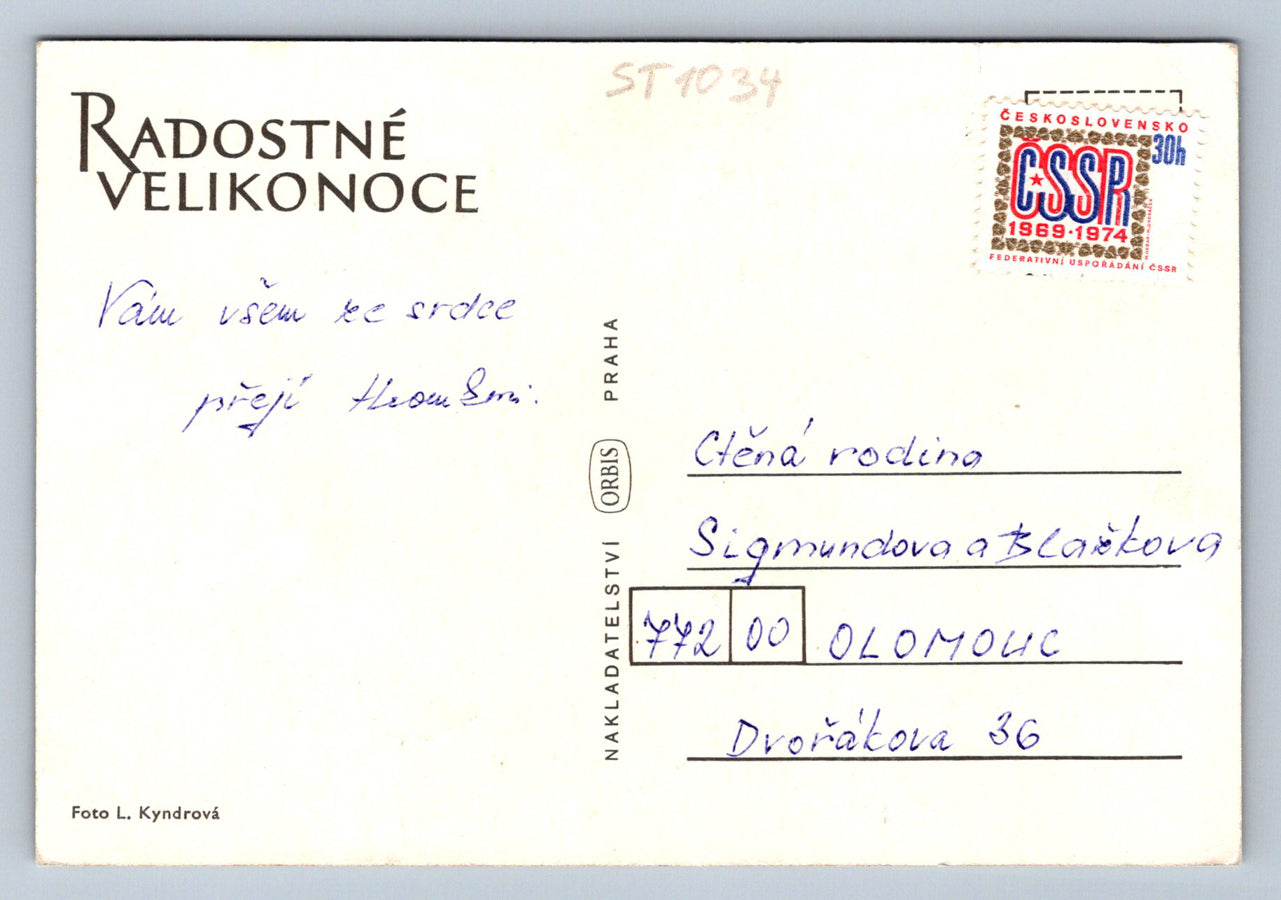 ST1034
RADOSTNÉ
VELIKONOCE
Vám všem ze srdce
přejí
ČESKOSLOVENSKO
30h
ČSSR
1969·1974
FEDERATIVNÍ USPOŘÁDÁNÍ ČSSR
NAKLADATELSTVÍ ORBIS PRAHA
Ctěná rodina
Sigmundova a Blažkova
772 00 OLOMOUC
Dvořákova 36
Foto L. Kyndrová